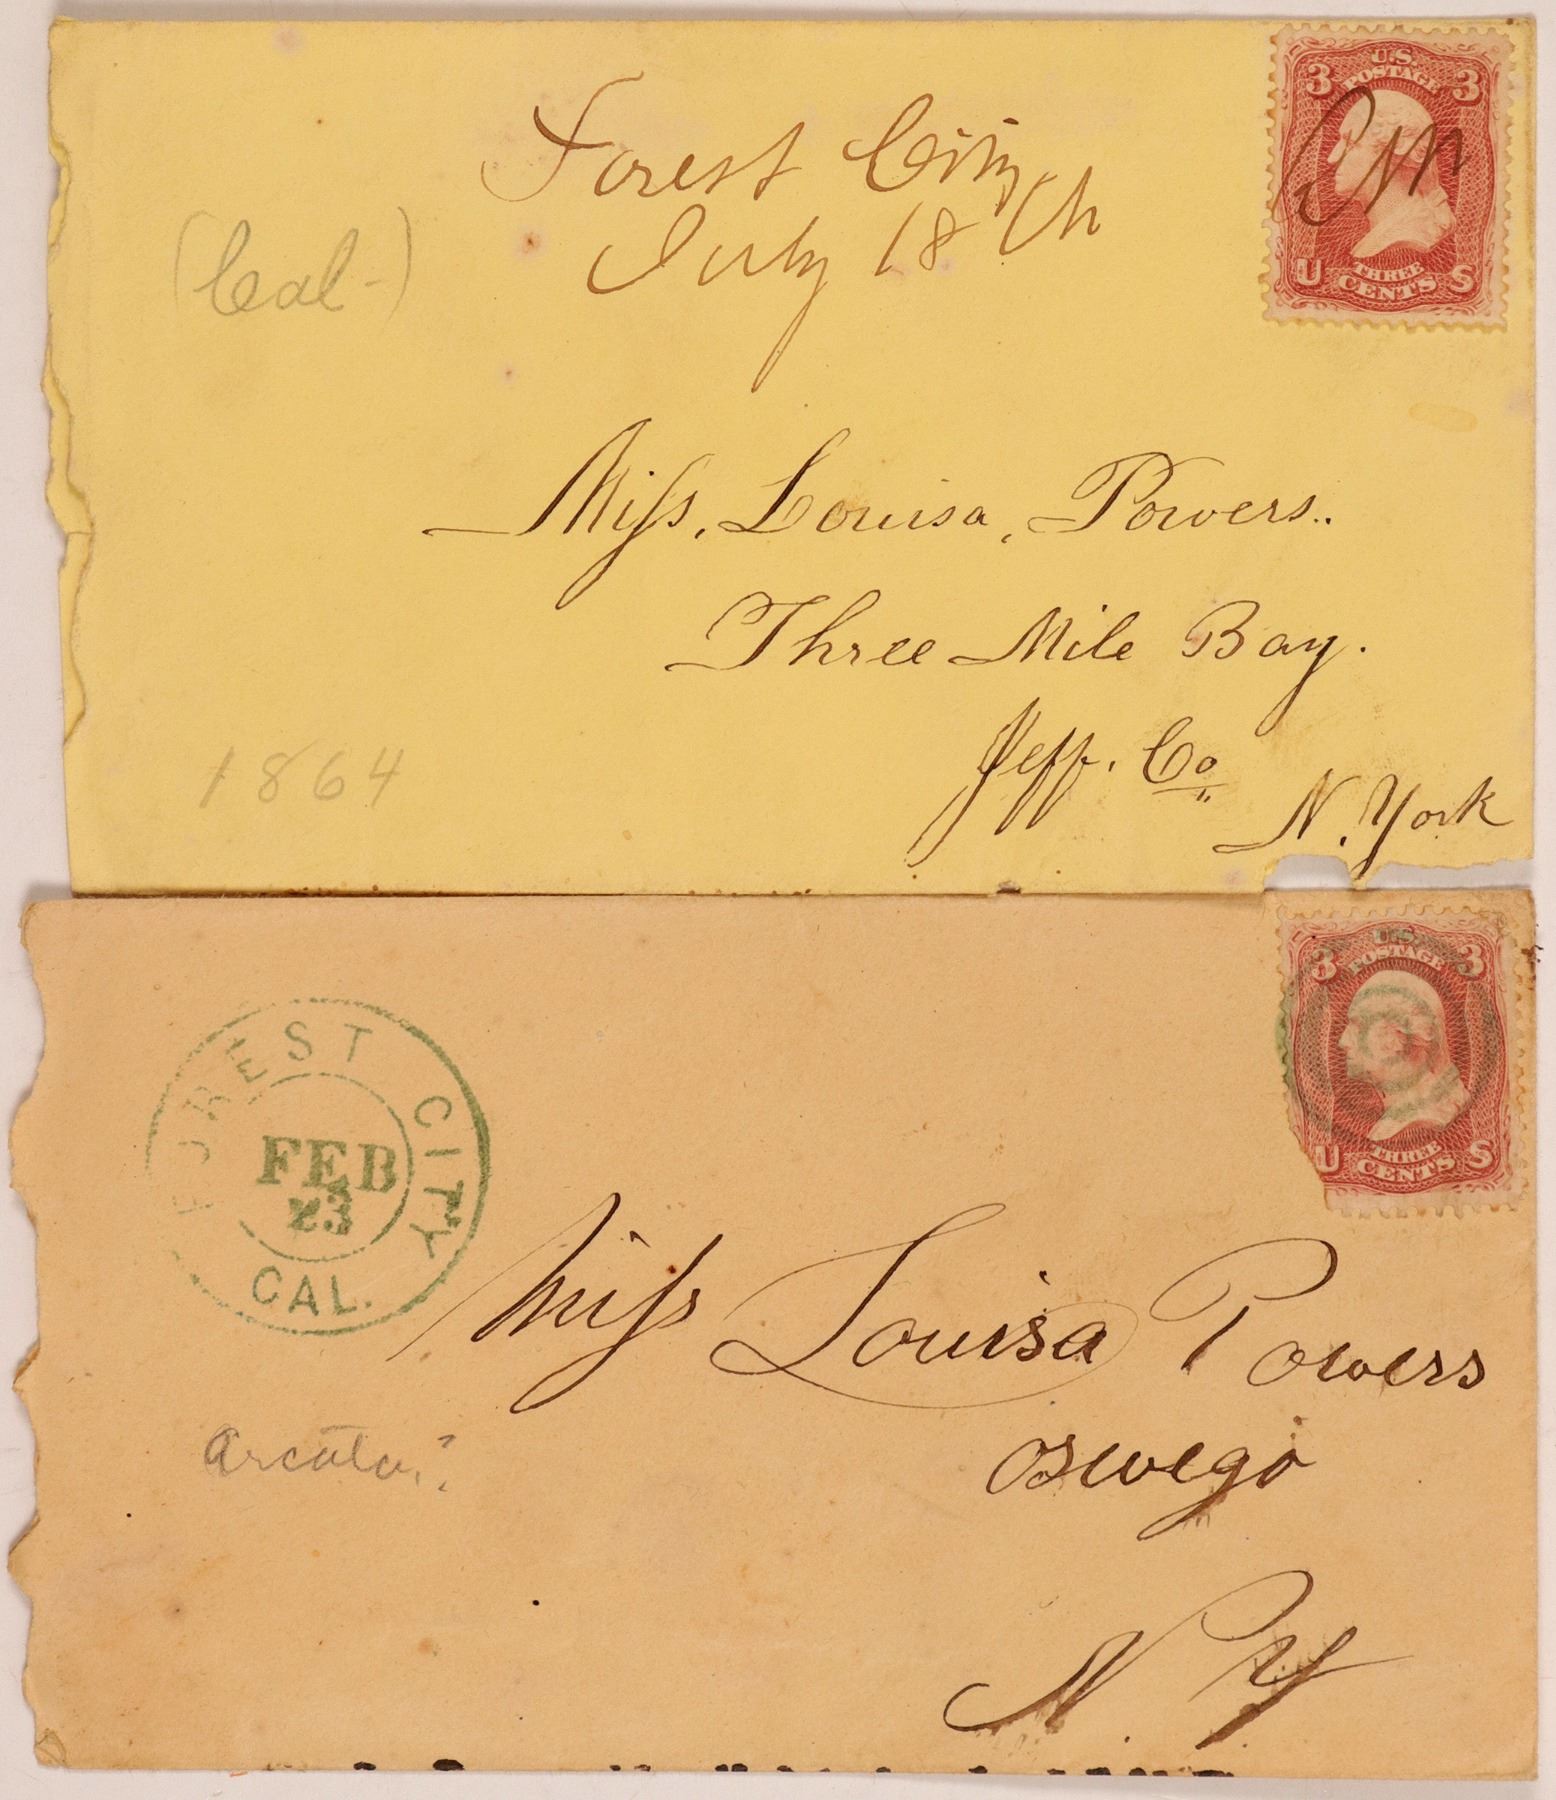 Forest City
July 18th
(Cal-)
U.S.
POSTAGE
3 3
U S
THREE
CENTS
Miss, Louisa, Powers..
Three Mile Bay.
Jeff. Co
N. York
1864
FOREST CITY
FEB
23
CAL.
U.S.
POSTAGE
3 3
U S
THREE
CENTS
Miss Louisa Powers
Oswego
Arcata?
N. Y